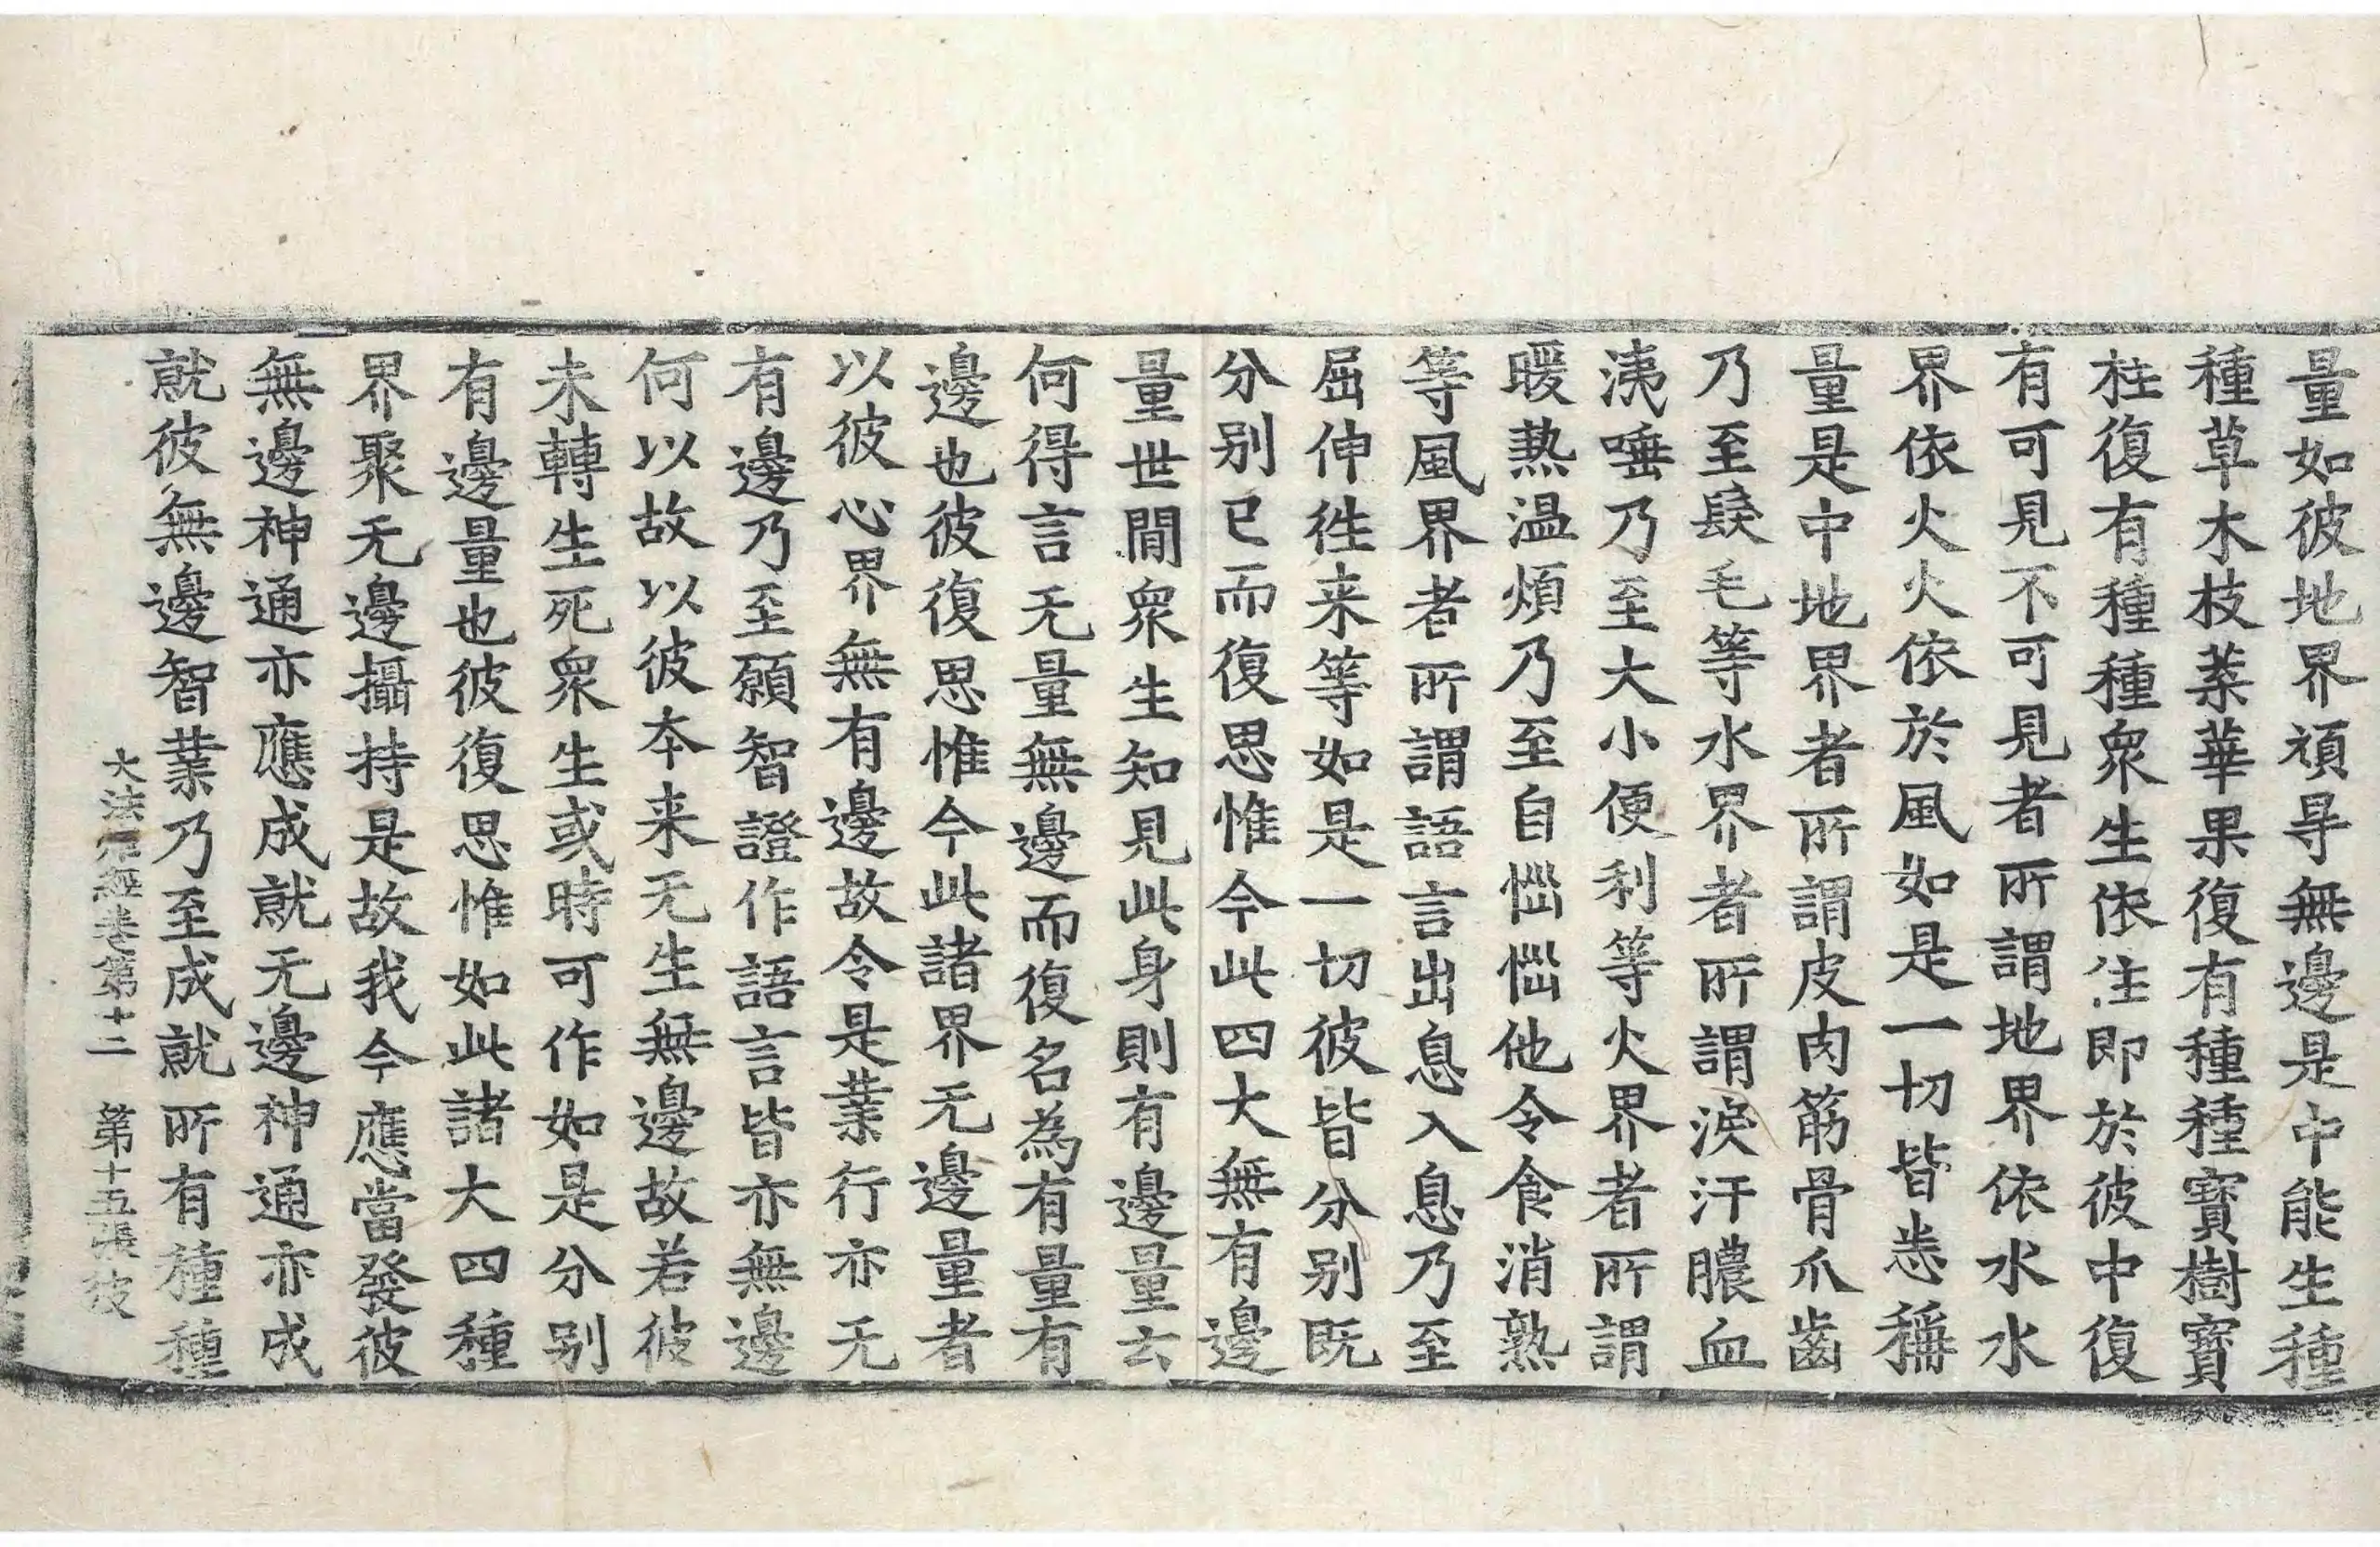 量如彼地界湏㝵無邊是中能生種
種草木枝葉華果復有種種寳樹寳
柱復有種種衆生依住即於彼中復
有可見不可見者所謂地界依水水
界依火火依於風如是一切皆悉稱
量是中地界者所謂皮肉筋骨爪齒
乃至髮毛等水界者所謂淚汗膿血
洟唾乃至大小便利等火界者所謂
暖熱温煩乃至自惱惱他令食消熟
等風界者所謂語言出息入息乃至
屈伸徃来等如是一切彼皆分别既
分别已而復思惟今此四大無有邊
量世間衆生知見此身則有邊量云
何得言无量無邊而復名為有量有
邊也彼復思惟今此諸界无邊量者
以彼心界無有邊故令是業行亦无
有邊乃至願智證作語言皆亦無邊
何以故以彼本来无生無邊故若彼
未轉生死衆生或時可作如是分别
有邊量也彼復思惟如此諸大四種
界聚无邊攝持是故我今應當發彼
無邊神通亦應成就无邊神通亦成
就彼無邊智業乃至成就所有種種
大法炬經卷第十二　第十五張　彼